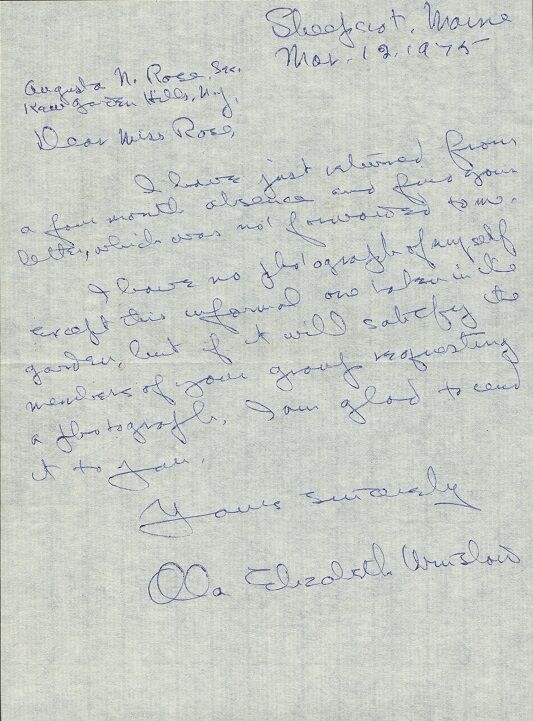 Sheepscot, Maine
Mar. 12, 1975
Augusta N. Rose, Sec.
Kew Garden Hills, N.Y.
Dear Miss Rose,
I have just returned from
a four month absence and find your
letter, which was not forwarded to me.
I have no photograph of myself
except this informal one taken in the
garden, but if it will satisfy the
members of your group requesting
a photograph, I am glad to send
it to you.
Yours sincerely,
Ola Elizabeth Winslow